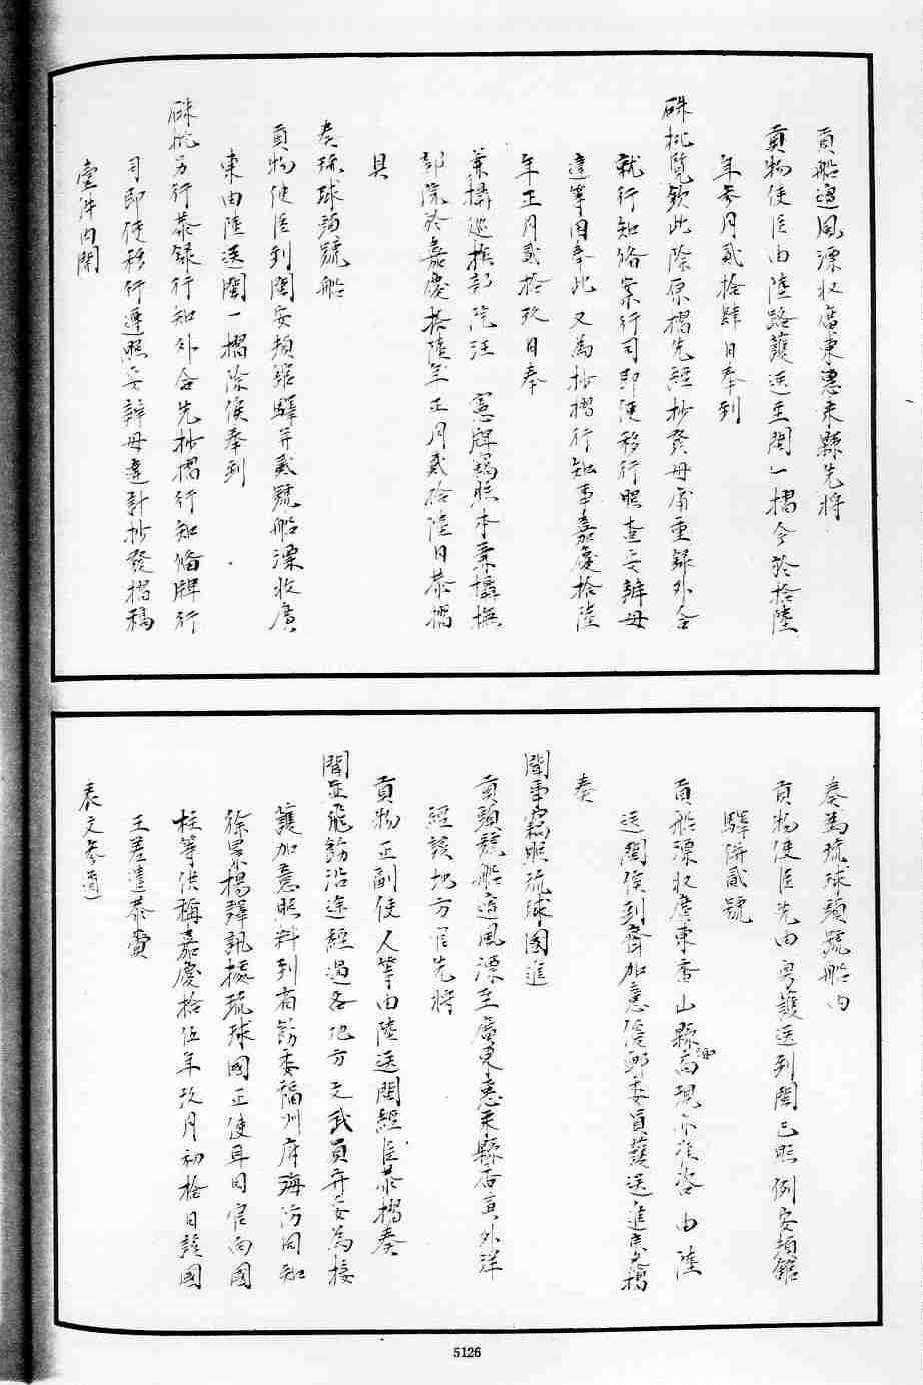 貢船遭風漂收廣東惠来縣先將
貢物使臣由陸路護送至閩一摺今於拾陸
年叁月貳拾肆日奉到
硃批覧欽此除原摺先經抄發毋庸重録外合
就行知俻案行司即便移行照查妥辦毋
違等因奉此又為抄摺行知事嘉慶拾陸
年正月貳拾玖日奉
兼攝巡撫部院汪 憲牌竊照本兼攝撫
部院於嘉慶拾陸年正月貳拾陸日恭摺
具
奏琉球頭號船
貢物使臣到閩安頓館驛并貳號船漂收廣
東由陸送閩一摺除俟奉到
硃批另行恭録行知外合先抄摺行知俻牌行
司即便移行遵照妥辦毋違計抄發摺稿
壹件内開
奏為琉球頭號船内
貢物使臣先由粤護送到閩已照例安頓館
驛併貳號
貢船漂收廣東香山縣面現亦准咨由陸
送閩俟到齊加意優䘏委員護送進京恭摺
奏
聞事竊照琉球國進
貢頭號船遭風漂至廣東惠来縣香員外洋
經該地方官先將
貢物正副使人等由陸送閩經臣恭摺奏
聞并飛飭沿途經過各地方文武員弁妥為接
護加意照料到省飭委福州府海防同知
徐景楊譯訊據琉球國正使耳目官向國
柱等供稱嘉慶拾伍年玖月初拾日該國
王差遣恭賫
表文叁通
5126